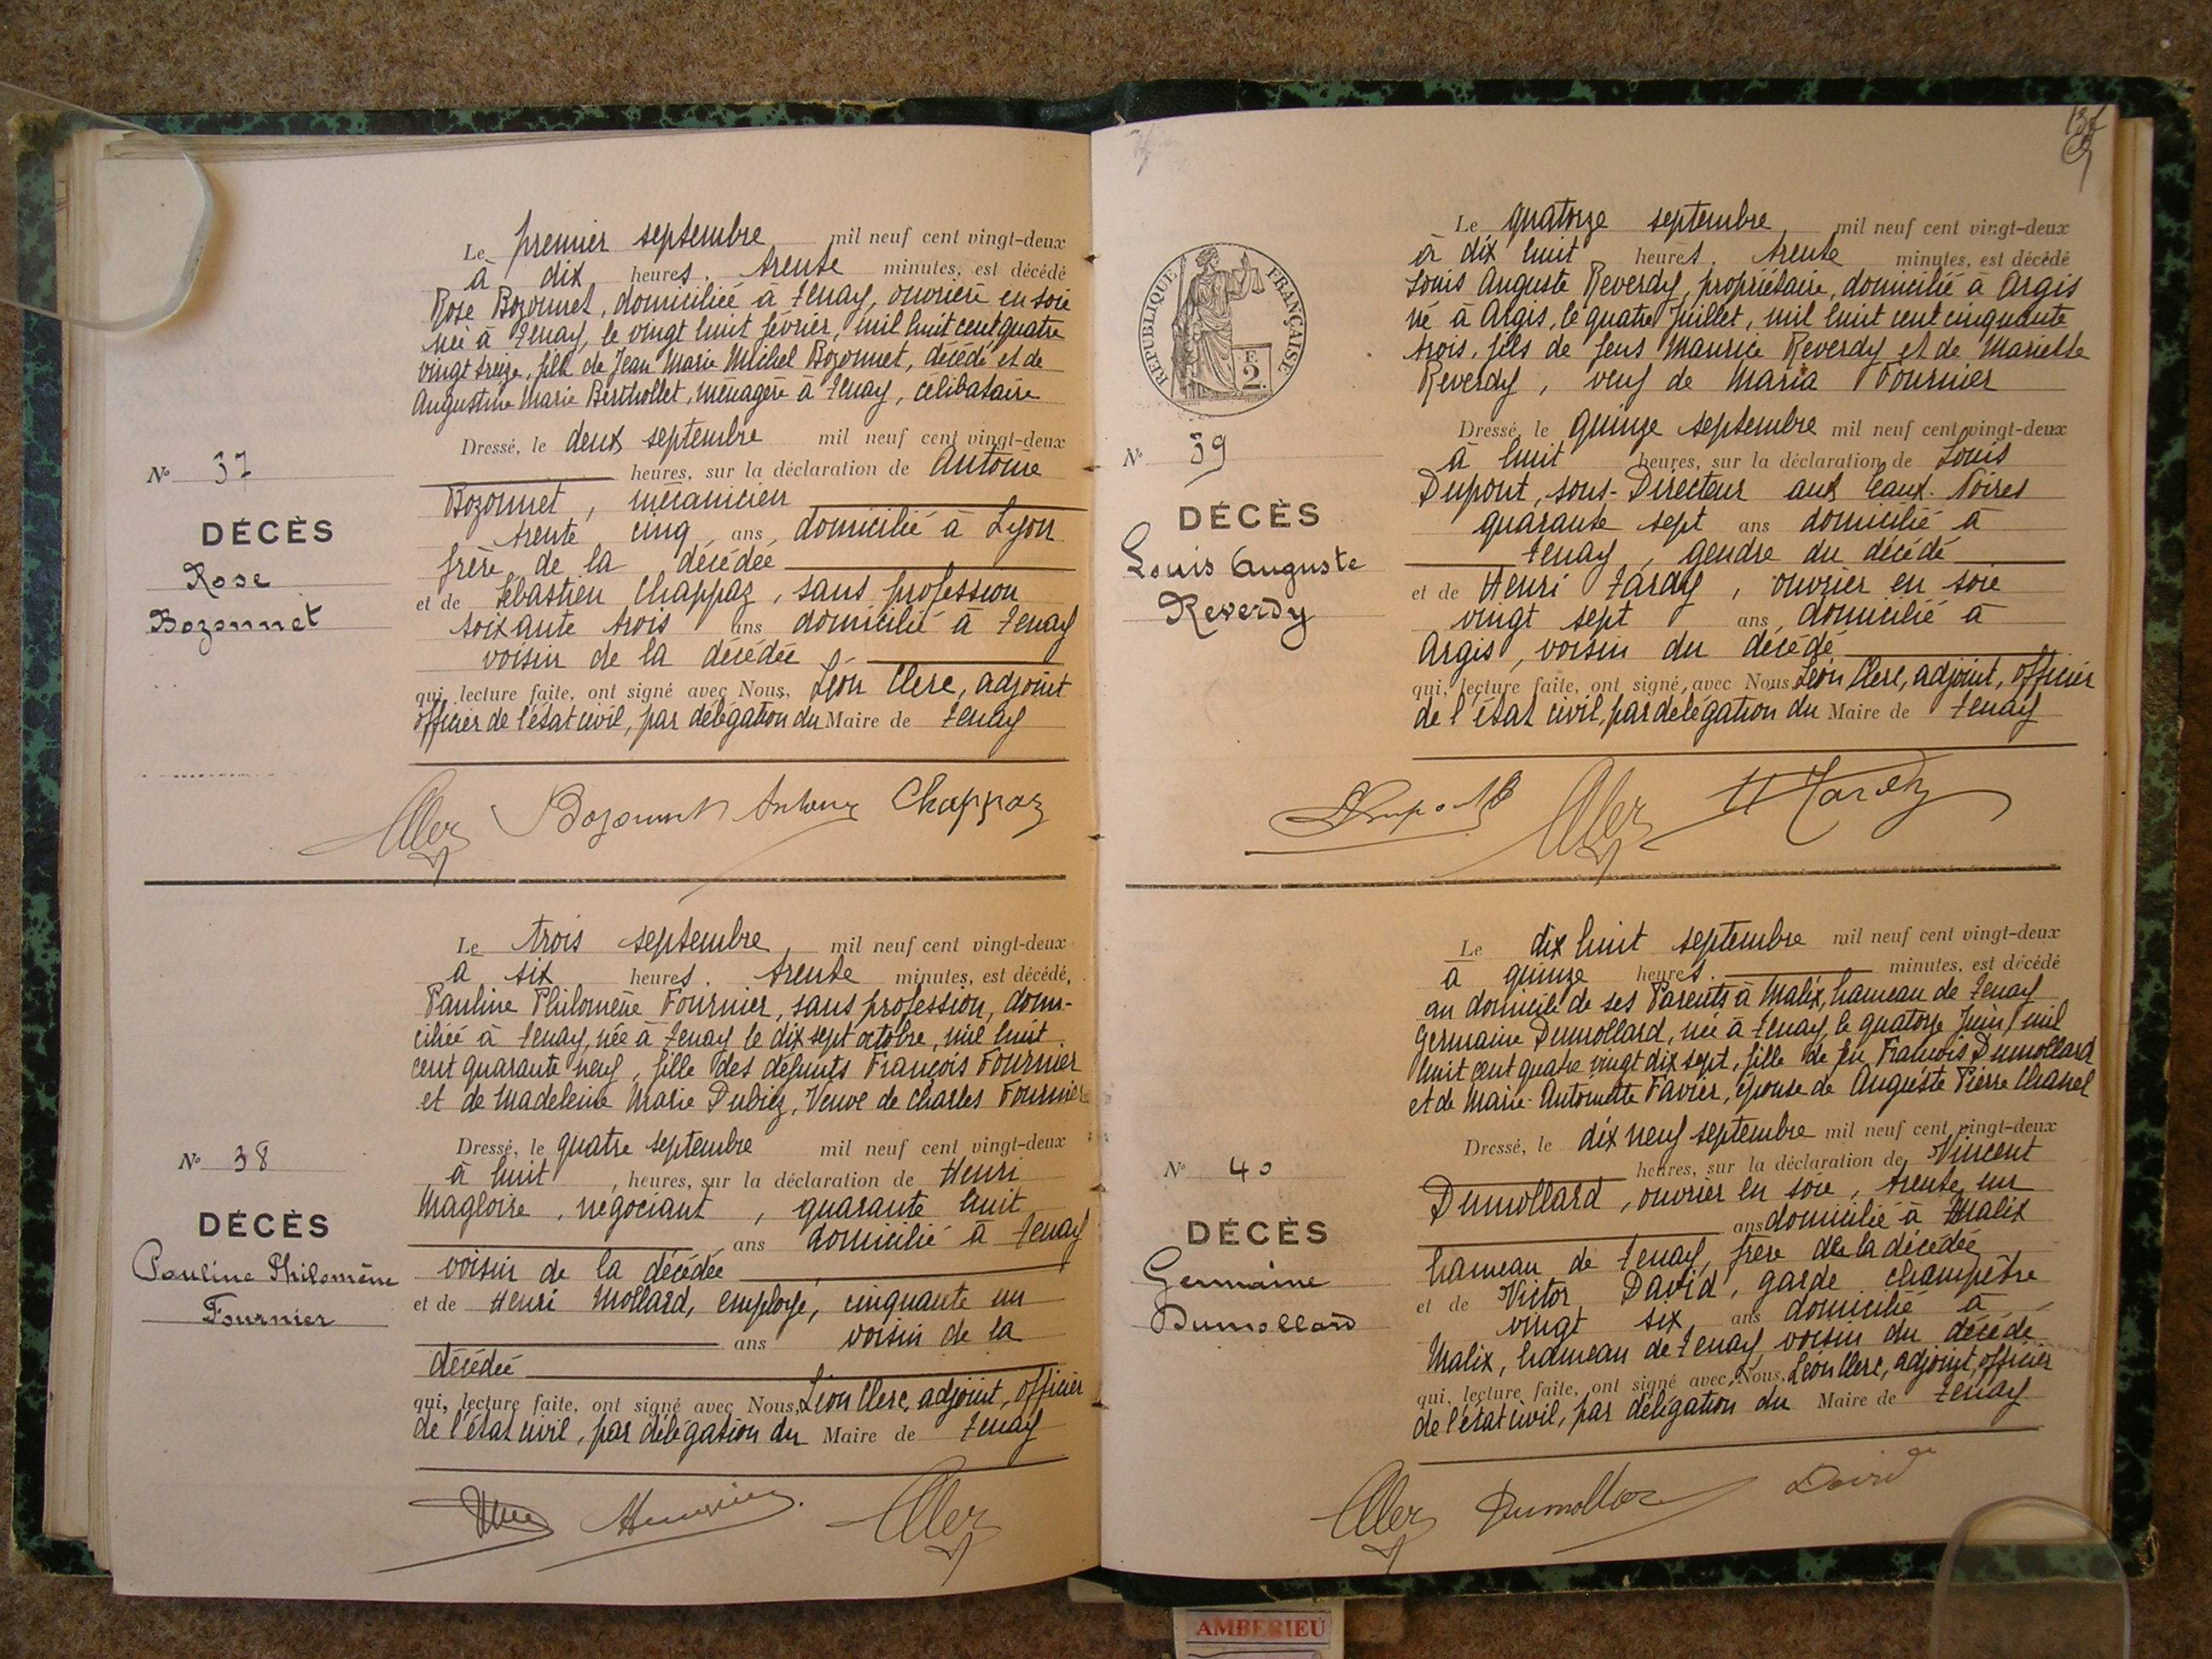 Le premier septembre mil neuf cent vingt-deux
à dix heures. trente minutes, est décédé
Rose Bozonnet, domiciliée à Tenay, ouvrière en soie
née à Tenay, le vingt huit février, mil huit cent quatre
vingt treize, fille de Jean Marie Michel Bozonnet, décédé et de
Augustine Marie Berthollet, ménagère à Tenay, célibataire
Dressé, le deux septembre mil neuf cent vingt-deux
heures, sur la déclaration de Antoine
Bozonnet, mécanicien
trente cinq ans, domicilié à Lyon
frère de la décédée
et de Sébastien Chappaz, sans profession
soixante trois ans domicilié à Tenay
voisin de la décédée
qui, lecture faite, ont signé avec Nous, Léon Clerc, adjoint
officier de l'état civil, par délégation du Maire de Tenay
N° 37
DÉCÈS
Rose
Bozonnet
Bozonnet Antoine Chappaz
Le trois septembre, mil neuf cent vingt-deux
à six heures. trente minutes, est décédé,
Pauline Philomène Fournier, sans profession, domi-
ciliée à Tenay, née à Tenay le dix sept octobre, mil huit
cent quarante neuf, fille des défunts François Fournier
et de Madeleine Marie Dubiez, Veuve de Charles Fournier
Dressé, le quatre septembre mil neuf cent vingt-deux
à huit, heures, sur la déclaration de Henri
Magloire, négociant, quarante huit
ans domicilié à Tenay
voisin de la décédée
et de Henri Mollard, employé, cinquante un
ans voisin de la
décédée
qui, lecture faite, ont signé avec Nous, Léon Clerc, adjoint, officier
de l'état civil, par délégation du Maire de Tenay
N° 38
DÉCÈS
Pauline Philomène
Fournier
RÉPUBLIQUE FRANÇAISE
2 F.
Le quatorze septembre mil neuf cent vingt-deux
à dix huit heures. trente minutes, est décédé
Louis Auguste Reverdy, propriétaire, domicilié à Argis
né à Argis, le quatre Juillet, mil huit cent cinquante
trois, fils de feus Maurice Reverdy et de Mariette
Reverdy, veuf de Maria Fournier
Dressé, le quinze septembre mil neuf cent vingt-deux
à huit heures, sur la déclaration de Louis
Dupont, sous-Directeur aux Eaux-Noires
quarante sept ans domicilié à
Tenay, gendre du décédé
et de Henri Tardy, ouvrier en soie
vingt sept ans, domicilié à
Argis, voisin du décédé
qui, lecture faite, ont signé, avec Nous Léon Clerc, adjoint, officier
de l'état civil, par délégation du Maire de Tenay
N° 39
DÉCÈS
Louis Auguste
Reverdy
H Tardy
Le dix huit septembre mil neuf cent vingt-deux
à quinze heures. minutes, est décédé
au domicile de ses Parents à Malix, hameau de Tenay
Germaine Dumollard, née à Tenay, le quatorze Juin, mil
huit cent quatre vingt dix sept, fille de feu François Dumollard
et de Marie-Antoinette Favier, épouse de Auguste Pierre Chanel
Dressé, le dix neuf septembre mil neuf cent vingt-deux
heures, sur la déclaration de Vincent
Dumollard, ouvrier en soie, trente un
ans domicilié à Malix
hameau de Tenay, frère de la décédée
et de Victor David, garde champêtre
vingt six ans domicilié à
Malix, hameau de Tenay, voisin du décédé
qui, lecture faite, ont signé avec Nous, Léon Clerc, adjoint, officier
de l'état civil, par délégation du Maire de Tenay
N° 40
DÉCÈS
Germaine
Dumollard
Dumollard David
AMBERIEU